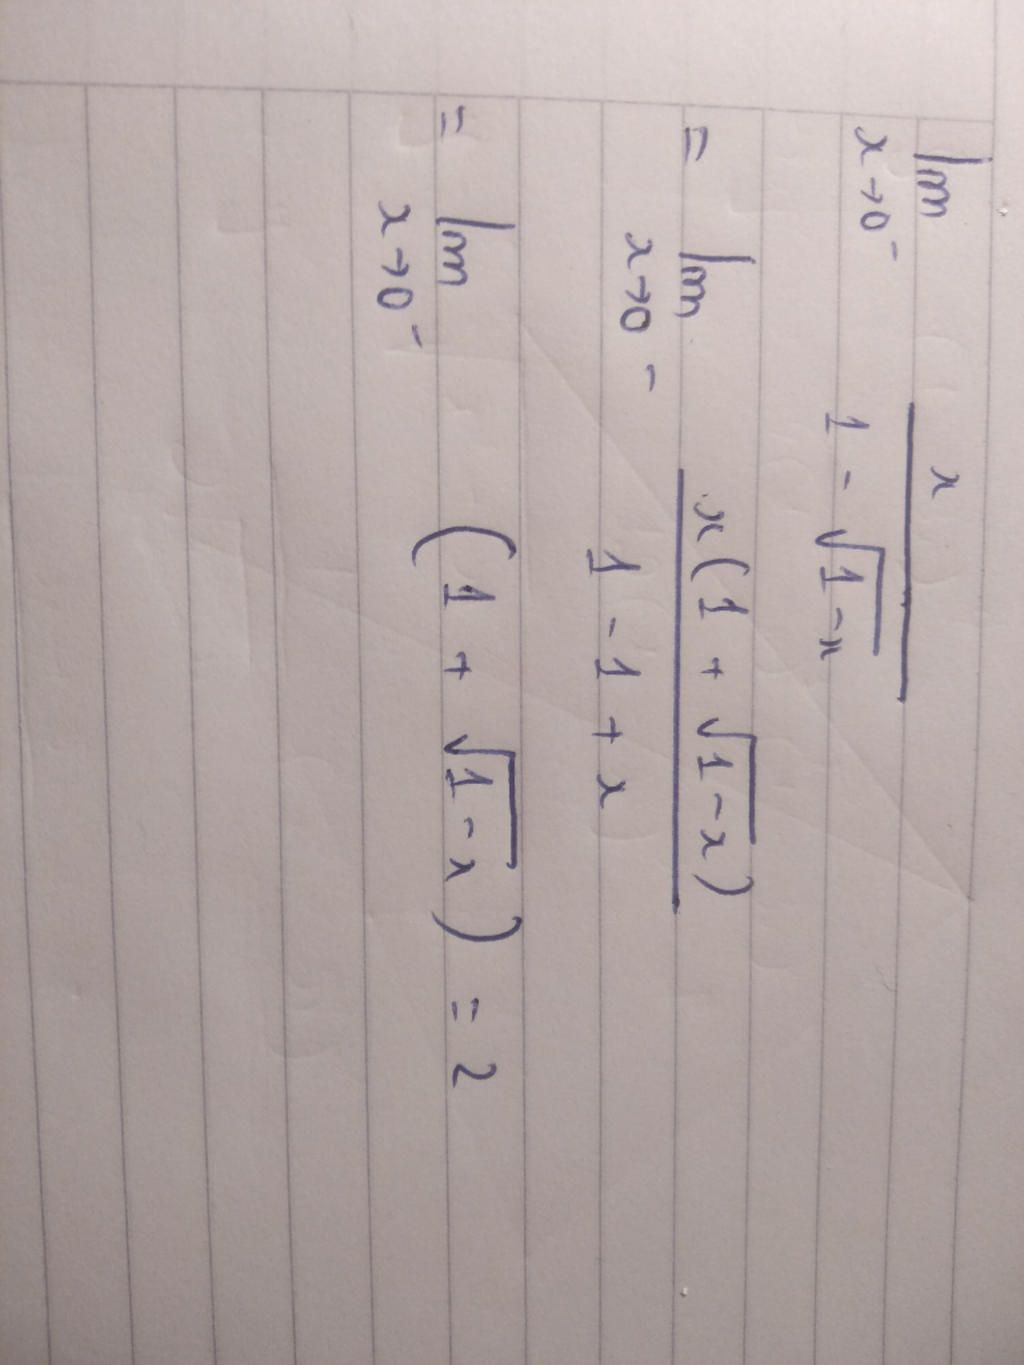 lim x→0⁻ x / (1 - √(1-x))
= lim x→0⁻ x(1 + √(1-x)) / (1 - 1 + x)
= lim x→0⁻ (1 + √(1-x)) = 2